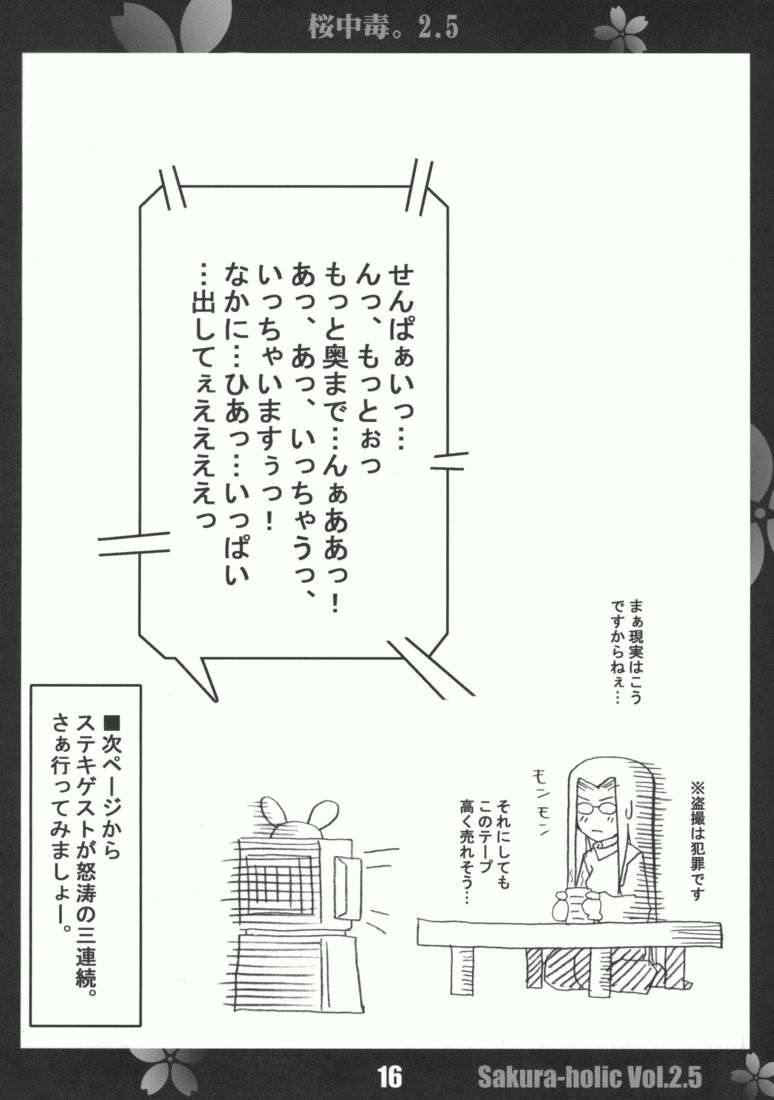 桜中毒。2.5
せんぱぁいっ…
んっ、もっとぉっ
もっと奥まで…んぁああっ！
あっ、あっ、いっちゃうっ、
いっちゃいますぅっ！
なかに…ひあっ…いっぱい
…出してぇええええっ
まぁ現実はこう
ですからねぇ…
※盗撮は犯罪です
モンモン
それにしても
このテープ
高く売れそう…
■次ページから
ステキゲストが怒涛の三連続。
さぁ行ってみましょー。
16
Sakura-holic Vol.2.5